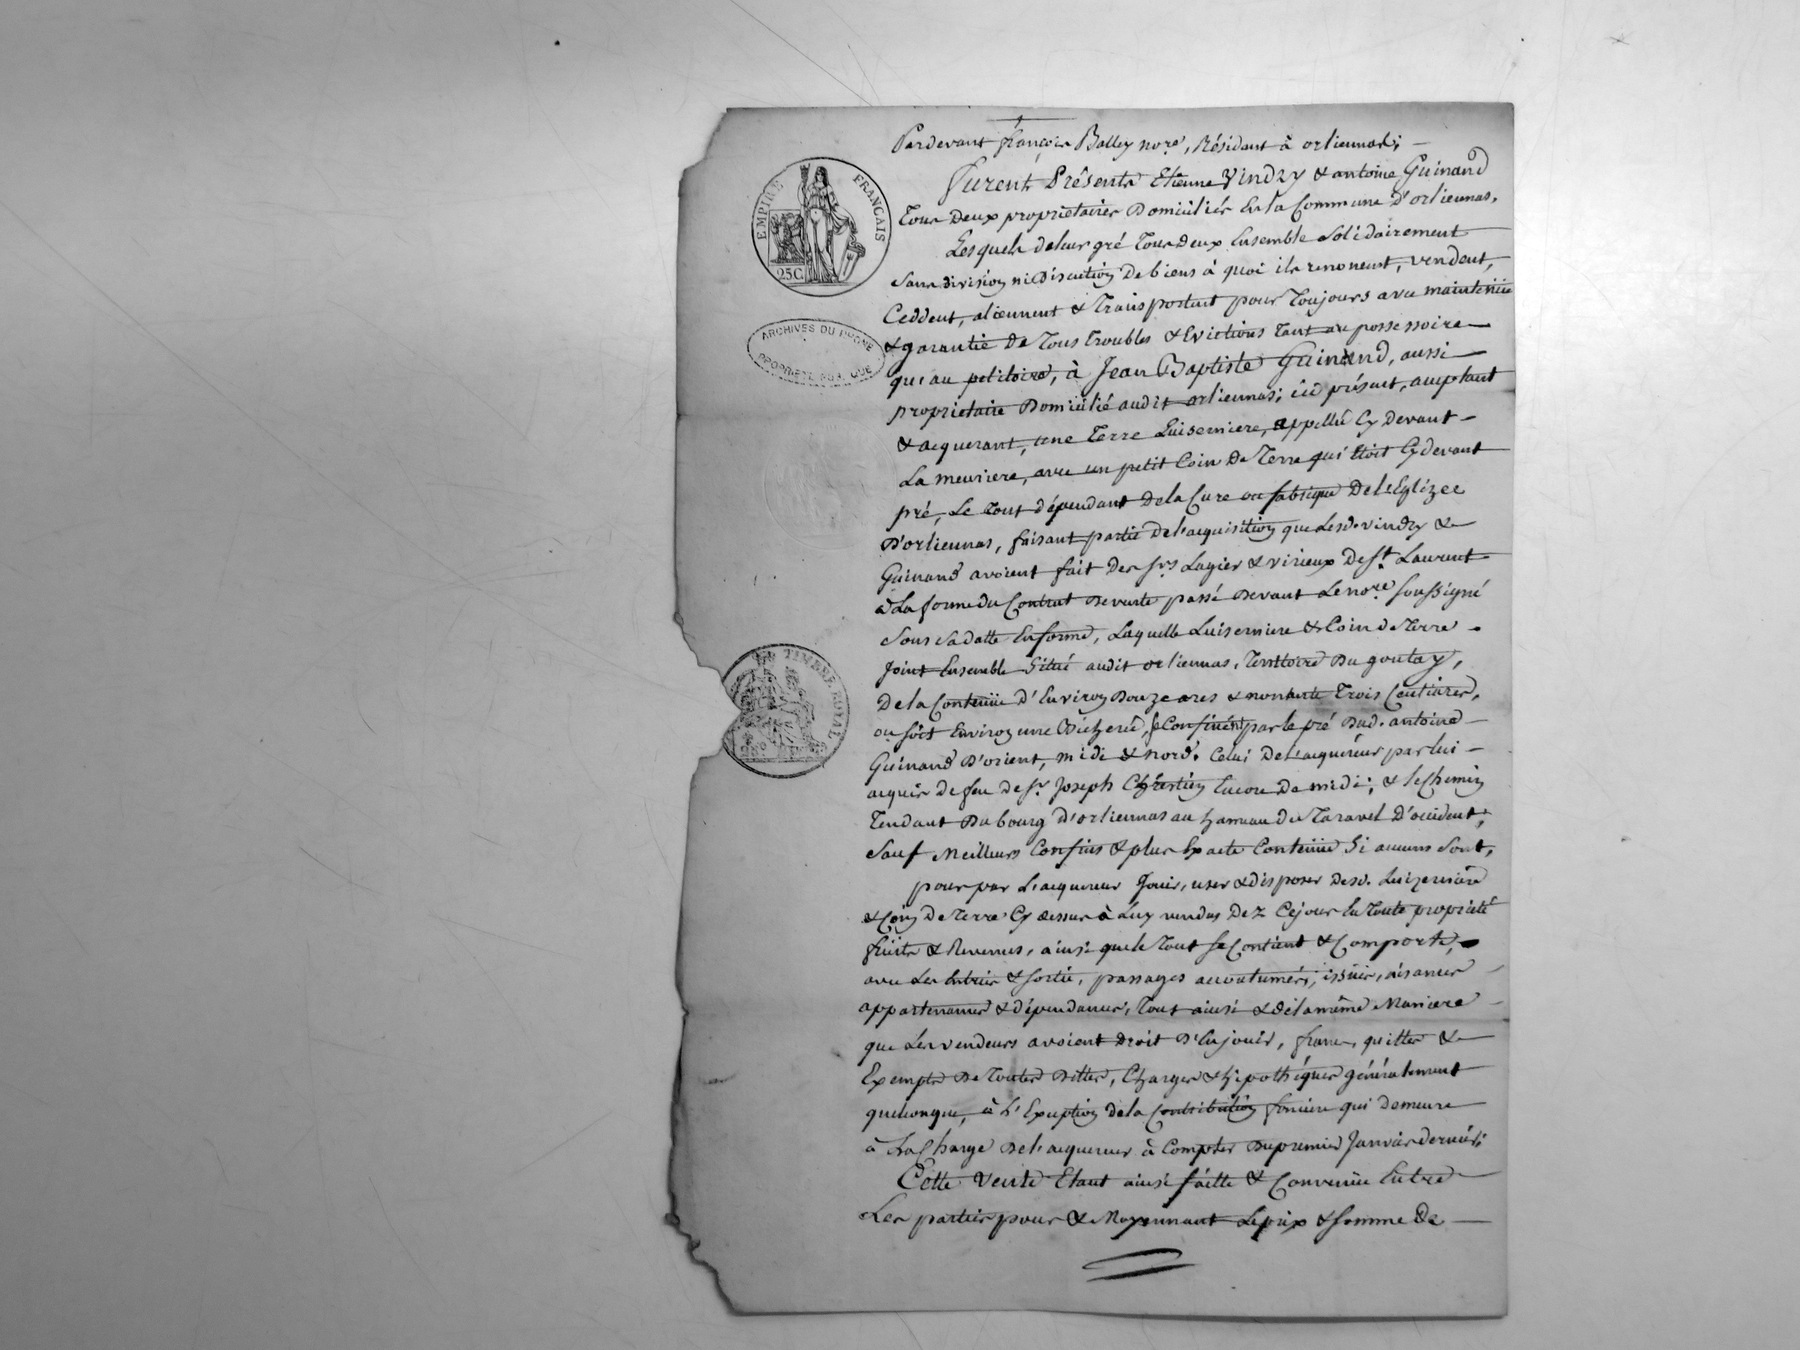 Pardevant françois Balley no.re, Résident à orliennas;
furent Présents Etienne Vindry & antoine Guinand
Tous Deux proprietaires Domiciliés En la Commune D'orliennas,
Lesquels de leur gré Tous Deux Ensemble Solidairement
Sans division ni Discution De biens à quoi ils renoncent, vendent,
Ceddent, aliennent & Transportent pour Toujours avec maintenüe
& garantie De Tous Troubles & Evictions Tant au possessoire
qu'au petitoire, à Jean Baptiste Guinand, aussi
proprietaire Domicilié audit orliennas; ici présent, acceptant
& acquerant, une Terre Luiserniere, appellée Cy Devant
La meuniere, avec un petit Coin De Terre qui Etoit Cydevant
pré, Le Tout dépendant De la Cure ou fabrique De L'Eglizee
D'orliennas, faisant partie De l'acquisition que Lesd. vindry &
Guinand avoient fait Des Srs Lagier & virieux De St. Laurent
à La forme du Contrat De vente passé Devant Le nore Soussigné
Sous Sa datte En forme, Laquelle Luiserniere & Coin de Terre
Joint Ensemble Situé audit orliennas, Territoire Du goutay,
De la Contenüe D'Environ Douze ares & nonante Trois Centiares,
ou Soit Environ une Bicherée, Se Confinent par le pré Dud. antoine
Guinand D'orient, midi & nord. Celui De L'acquéreur par lui
acquis de feu De Sr. Joseph Chrestien Encore De midi; & le Chemin
Tendant Du bourg D'orliennas au hameau du Taravel D'occident;
Sauf Meilleurs Confins & plus Exacte Contenüe Si aucuns Sont,
pour par L'acquereur Jouir, user & disposer Desd. Luizerniere
& Coin De Terre Cy dessus à Luy vendus Dez Cejour En Toute propriété
fruits & Revenus, ainsi que le Tout Se Contient & Comporte,
avec Les Entrées & Sorties, passages accoutumés, issües, aisances
appartenances & dépendances, Tout ainsi & de la même Maniere
que Les vendeurs avoient Droit D'En jouir, francs, quittes &
Exempts De Toutes Dettes, Charges & hipothéques généralement
quelconque, à L'Exception De la Contribution fonciere qui Demeure
à La Charge De L'acquereur à Compter Du premier Janvier dernier;
Cette Vente Etant ainsi faitte & Convenüe Entre
Les parties pour & Moyennant Le prix & Somme De
EMPIRE FRANÇAIS
25 C.
ARCHIVES DU RHÔNE
PROPRIÉTÉ PUBLIQUE
TIMBRE ROYAL